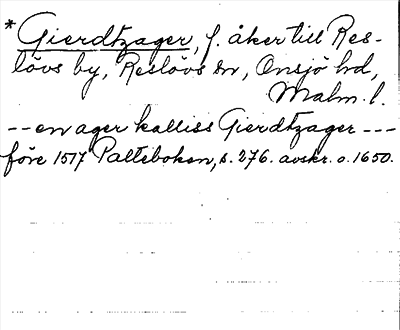 * Gierdtzager, f. åker till Res-
lövs by, Reslövs sn, Onsjö hd,
Malm. l.
-- en ager kalliss Gierdtzager ---
före 1517 Palteboken, s. 276. avskr. o. 1650.